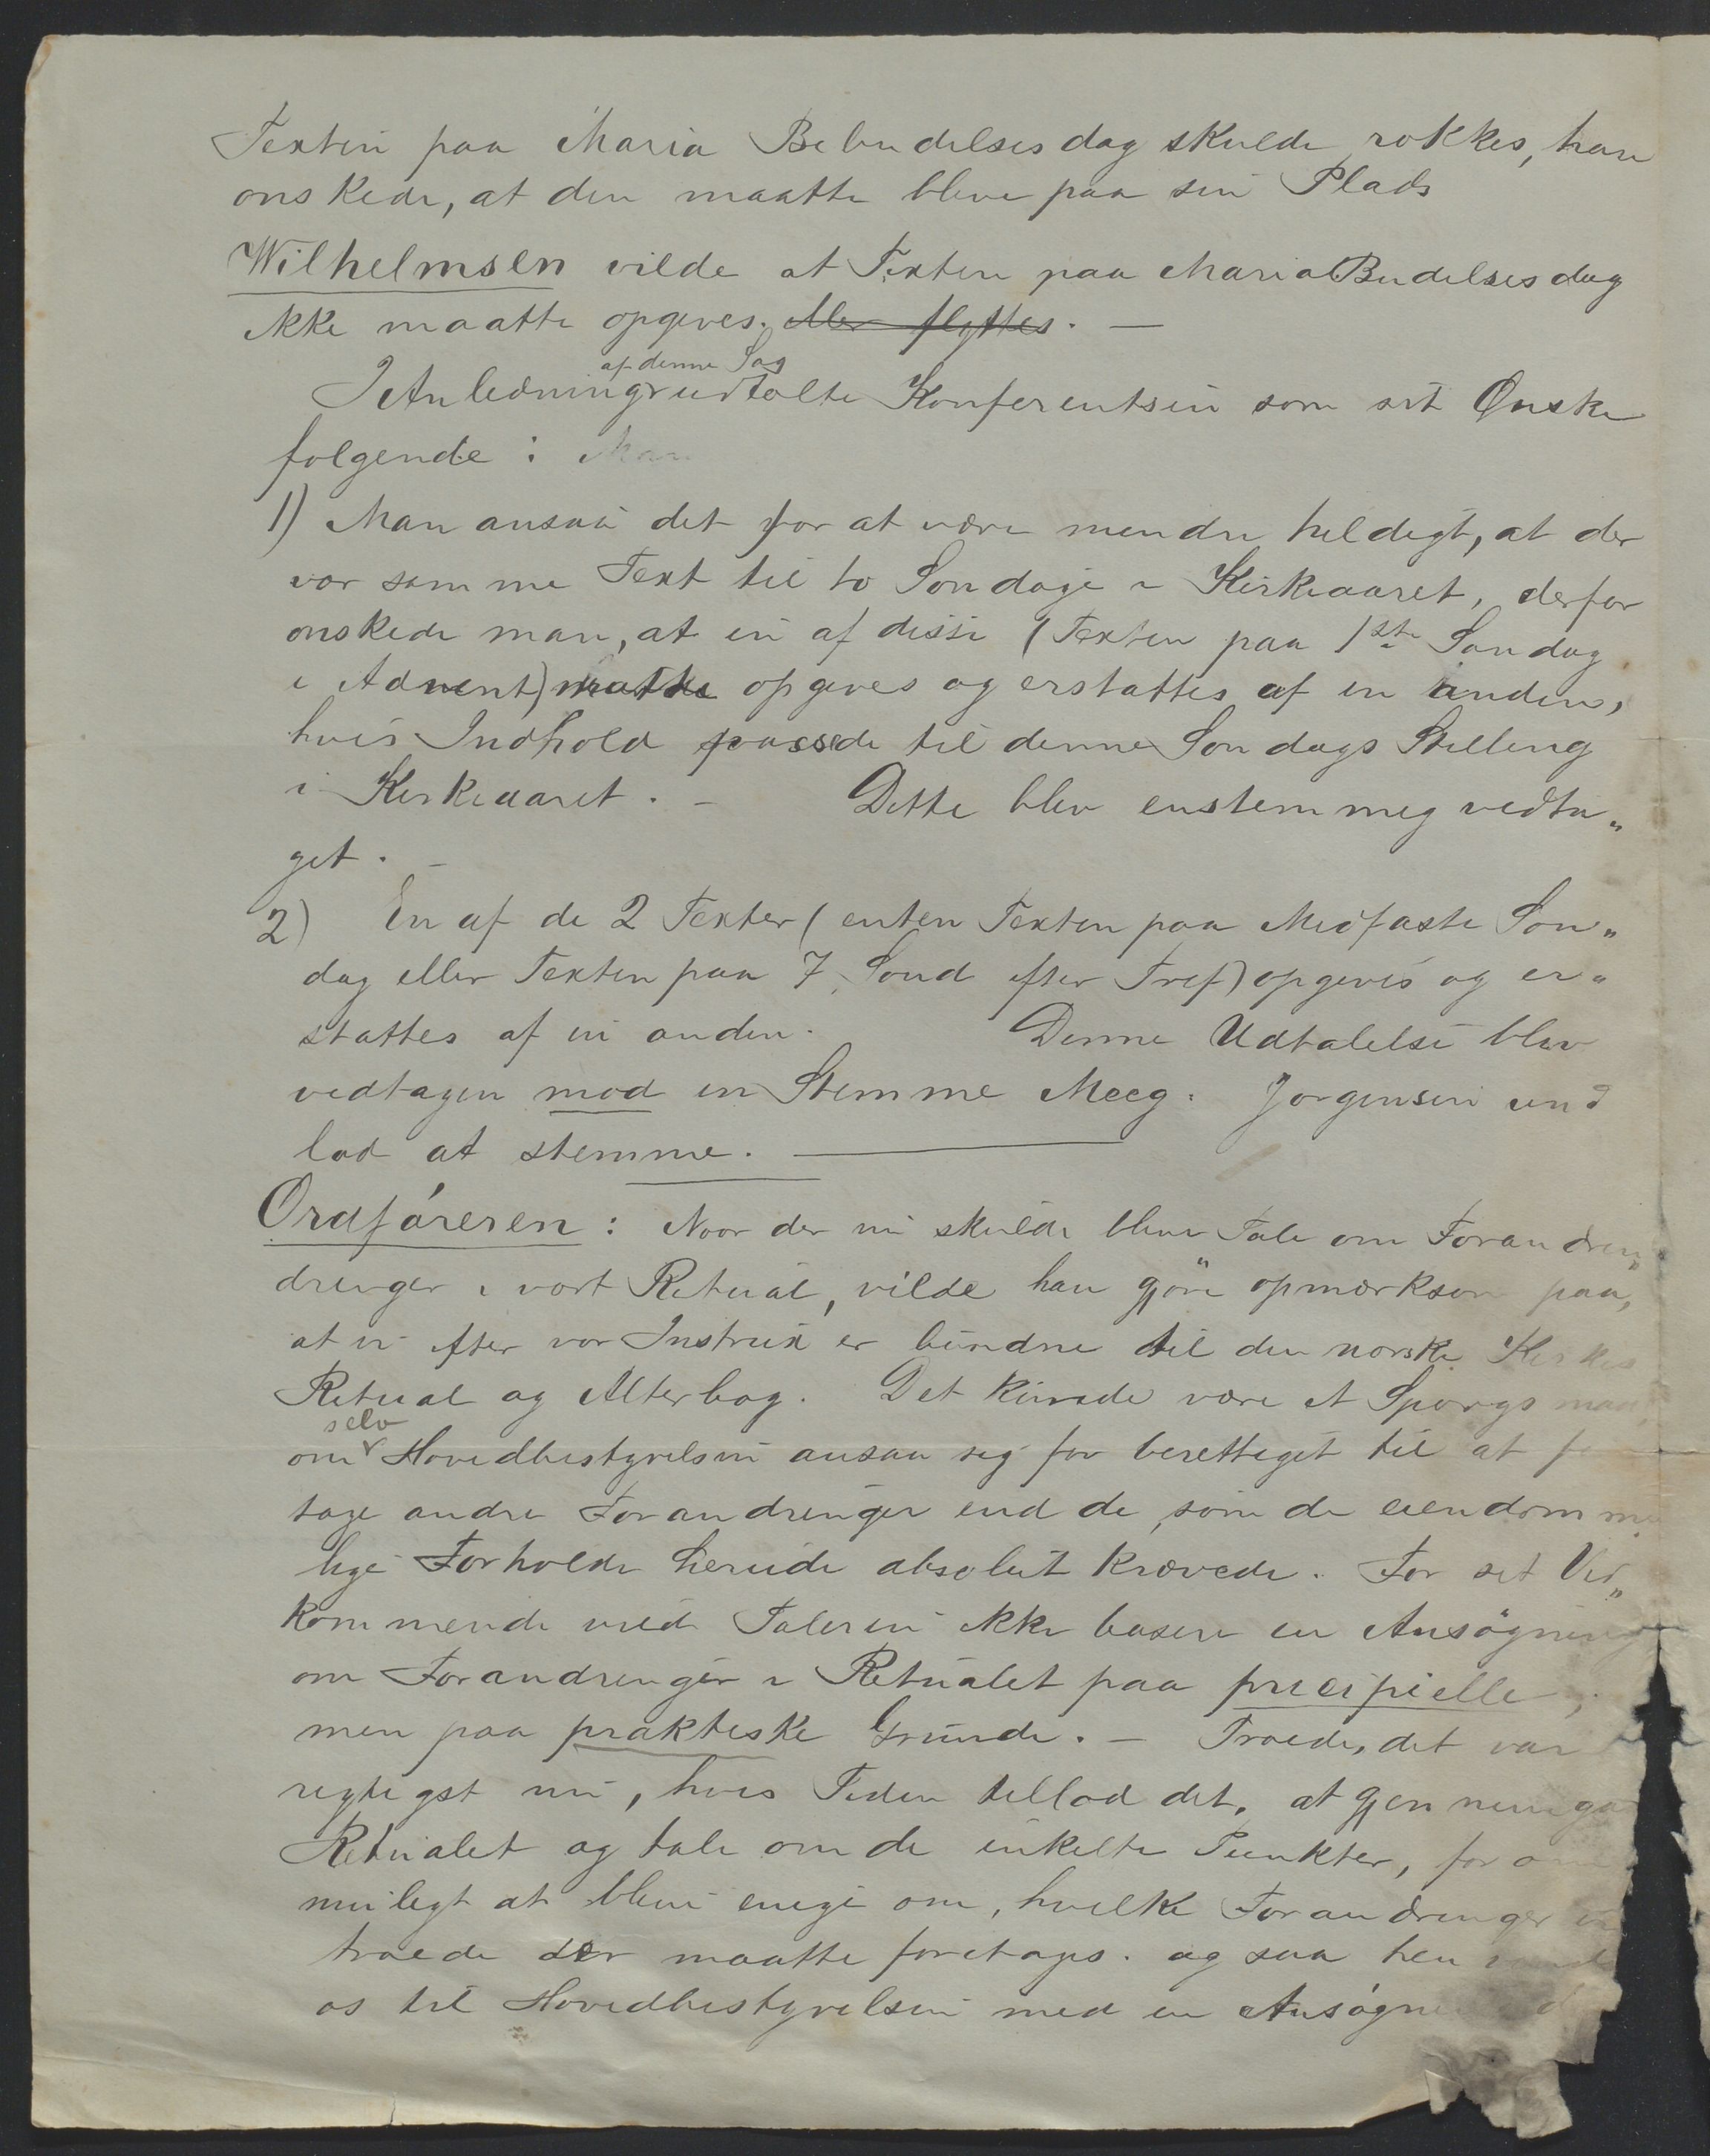 Texten paa Maria Bebudelsesdag skulde rokkes, han
onskede, at den maatte blive paa sin Plads
Wilhelmsen vilde at Texten paa Maria Budelsesdag
ikke maatte opgives. eller flyttes. —
af denne Sag
I Anledning udtalte Konferentsen som sit Ønske
folgende: Man
1) Man ansaa det for at være mindre heldigt, at der
var samme Text til to Sondage i Kirkeaaret, derfor
onskede man, at en af disse (Texten paa 1ste Sondag
i Advent) maatte opgives og erstattes af en anden,
hvis Indhold passede til denne Sondags Stilling
i Kirkeaaret. – Dette blev enstemmig vedta„
get. –
2) En af de 2 Texter (enten Texten paa Midfaste Son„
dag eller Texten paa 7. Sond efter Tref) opgives og er„
stattes af en anden. Denne Udtalelse blev
vedtagen mod en Stemme Meeg. Jorgensen und
lod at stemme. —
Ordføreren: Naar der nu skulde blive Tale om Forandren„
dringer i vort Ritual, vilde han gjöre opmærksom paa,
at vi efter vor Instrux er bundne til den norske Kirkes
Ritual og Alterbog. Det kunde være et Sporgsmaal,
selv
om Hovedbestyrelsen ansaa sig for berettiget til at
tage andre Forandringer end de, som de eiendomme
lige Forholde herude absolut krævede. For sit Ved„
kommende vilde Taleren ikke basere en Ansögning
om Forandringer i Ritualet paa pricipielle,
men paa praktiske Grunde. – Troede, det var
rigtigst nu, hvis Tiden tillod det, at gjennemgaa
Ritualet og tale om de enkelte Punkter, for om
muligt at blive enige om, hvilke Forandringer vi
troede der maatte foretages. og saa hen
os til Hovedbestyrelsen med en Ansøgning